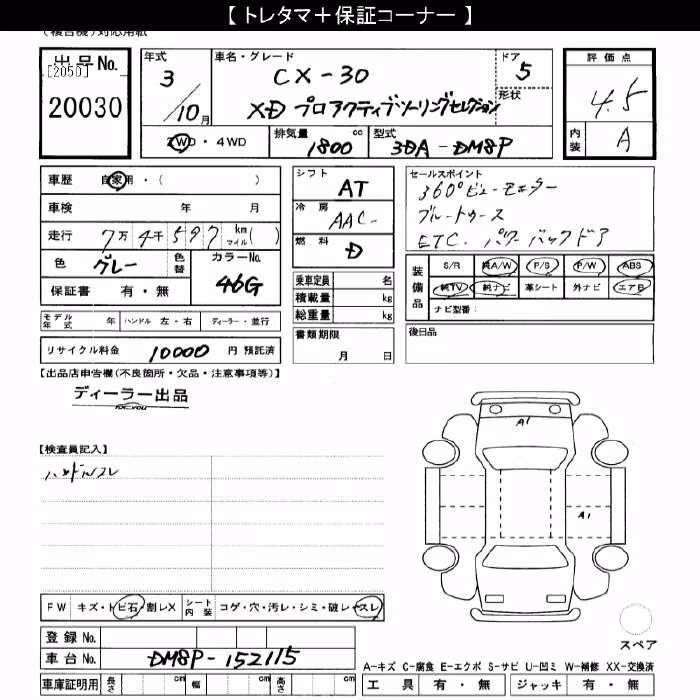 【 トレタマ＋保証コーナー 】
(複合機)対応用紙
出品No.
[2050]
20030
年式
3/10月
車名・グレード
CX-30
XD プロアクティブツーリングセレクション
ドア
5
形状
評価点
4.5
内装
A
2WD・4WD
排気量 1800 cc
型式 3DA-DM8P
車歴 自家用・( )
車検 年 月
走行 7万4千597 km マイル( )
色 グレー
色替
カラーNo.
46G
保証書 有・無
モデル年式 年 ハンドル 左・右 ディーラー・並行
リサイクル料金 10000 円 預託済
シフト
AT
冷房
AAC
燃料
D
乗車定員 名
積載量 kg
総重量 kg
書類期限
月 日
セールスポイント
360°ビューモニター
ブルートゥース
ETC. パワーバックドア
装備品
S/R 純A/W P/S P/W ABS
純TV 純ナビ 革シート 外ナビ エアB
ナビ型番:
後日品
【出品店申告欄(不良箇所・欠品・注意事項等)】
ディーラー出品
【検査員記入】
ハンドルスレ
A1
A1
FW キズ・トビ石・割レX
シート内装 コゲ・穴・汚レ・シミ・破レ・スレ
登録No.
車台No. DM8P-152115
車庫証明用 長さ cm 幅 cm 高さ cm
スペア
A-キズ C-腐食 E-エクボ S-サビ U-凹ミ W-補修 XX-交換済
工具 有・無 ジャッキ 有・無